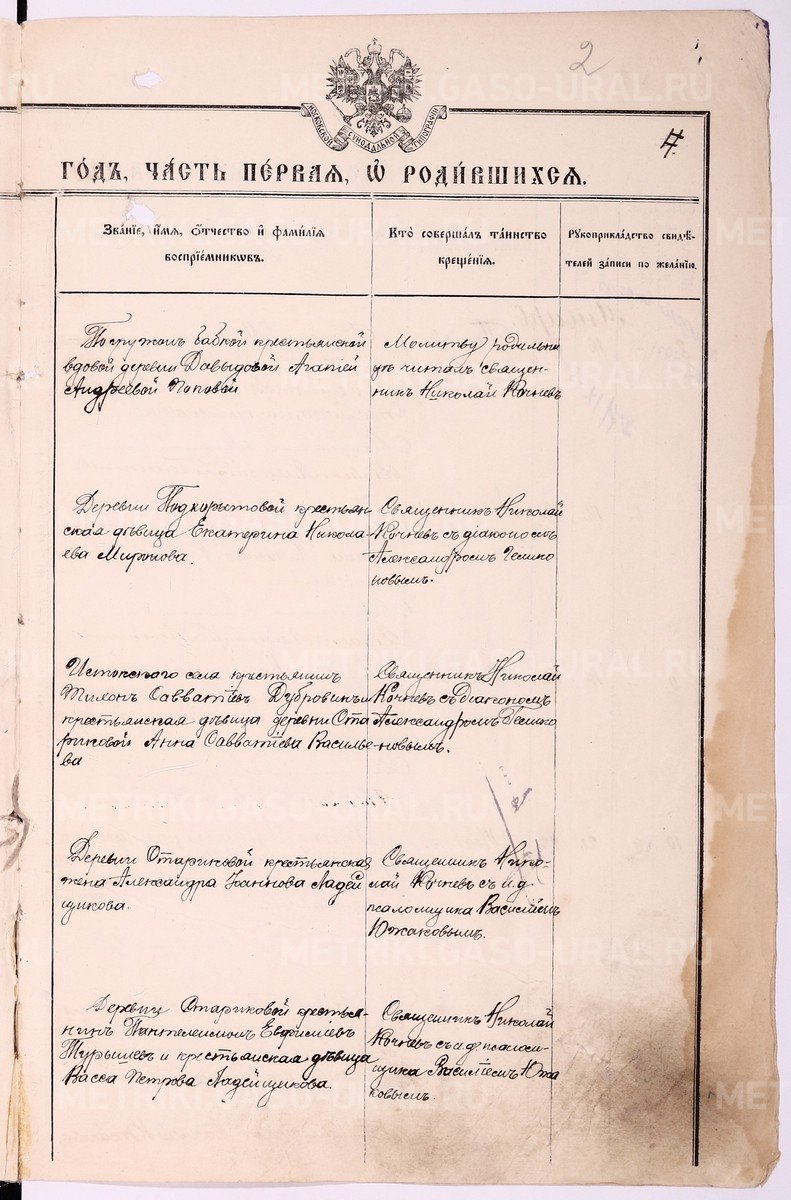 2
МОСКОВСКОЙ СѴНОДАЛЬНОЙ ТИПОГРАФІИ
ГО́ДЪ, ЧА́СТЬ ПЕ́РВАЯ, Ѡ҆ РОДИ́ВШИХСЯ.
Зва́нїе, и҆́мѧ, ѻ҆́тчество и҆ фами́лїѧ
воспрїе́мникѡвъ.
Кто̀ соверша́лъ та́инство
креще́нїѧ.
Рꙋкоприкла́дство свидѣ́-
телей за́писи по жела́нїю.
Погружалъ бабкой крестьянской
вдовой деревни Давыдовой Агапіей
Андреевой Поповой
Молитву родильни
цѣ читалъ священ-
никъ Николай Кочневъ
Деревни Подкорытовой крестьян
ская дѣвица Екатерина Никола
ева
Священникъ Николай
Кочневъ съ діакономъ
Александромъ
новымъ.
Истокского села крестьянинъ
Тихонъ Савватіевъ Дубровинъ и
крестьянская дѣвица деревни Ста
риковой Анна Савватіева Василье
ва
Священникъ Николай
Кочневъ съ Діакономъ
Александромъ
новымъ.
Деревни Стариковой крестьянская
жена Александра Іоаннова Ладей
щикова.
Священникъ Нико-
лай Кочневъ съ и.д.
псаломщика Василіемъ
Южаковымъ.
Деревни Стариковой крестья-
нинъ Пантелеимонъ Евфиміевъ
Турышевъ и крестьянская дѣвица
Васса Петрова Ладейщикова.
Священникъ Николай
Кочневъ съ и.д. псалом-
щика Василіемъ Южа
ковымъ.
METRIKI.GASO-URAL.RU